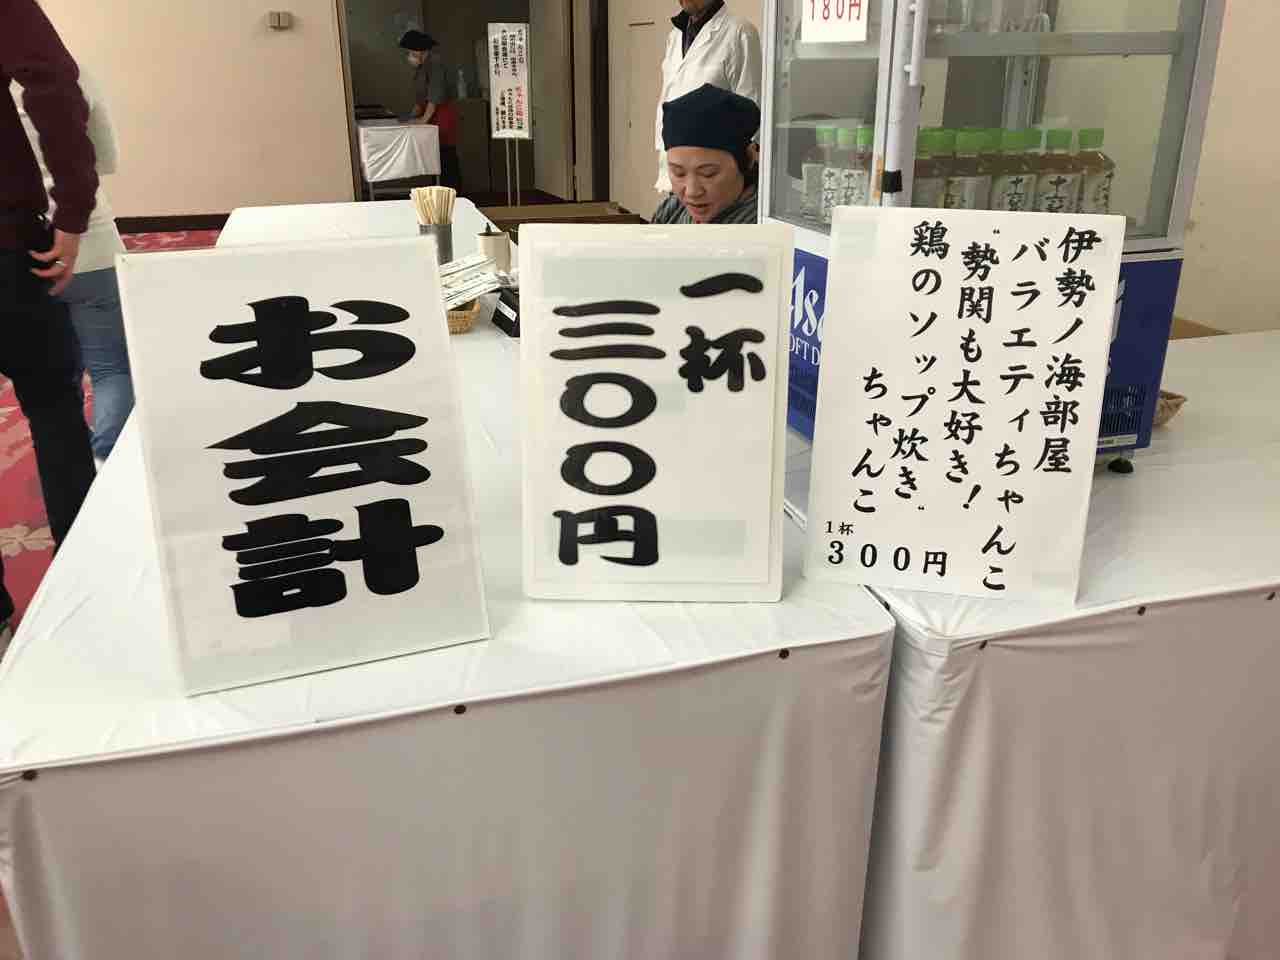 お会計
一杯
三〇〇円
伊勢ノ海部屋
バラエティちゃんこ
“勢関も大好き!
鶏のソップ炊き”
ちゃんこ
1杯
300円
180円
十六茶
十六茶
十六茶